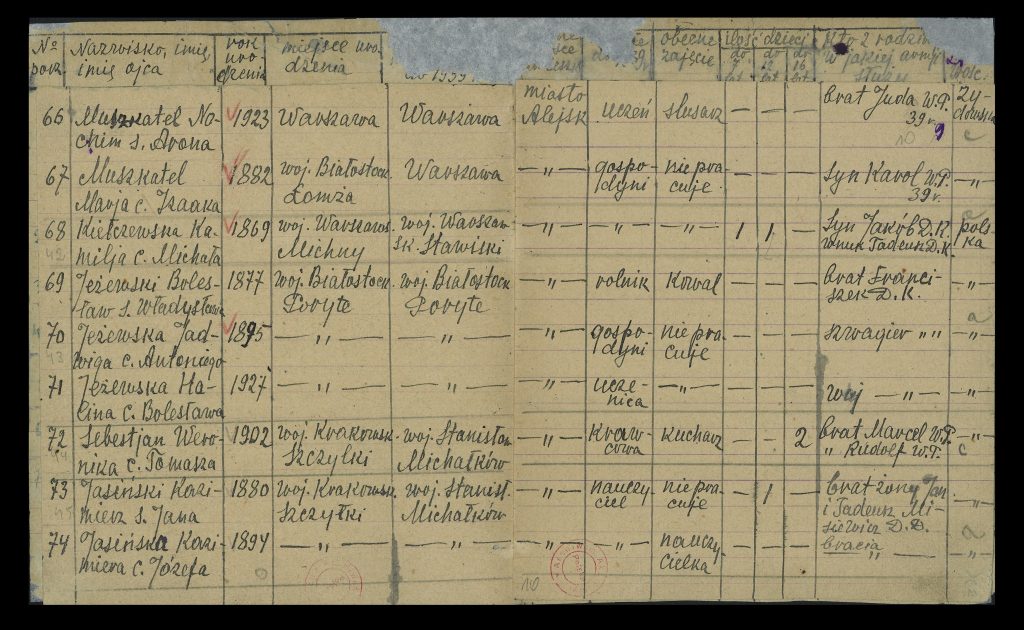 No porz. | Nazwisko, imię, imię ojca | rok urodzenia | miejsce urodzenia | do 1939. | obecne zajęcie | ilość dzieci do 7 lat | do 14 lat | do 16 lat | Kto z rodziny w jakiej armji służy
66 | Muszkatel Nochim s. Arona | 1923 | Warszawa | Warszawa | miasto Alejsk | uczeń | ślusarz | — | — | brat Juda W.P. 39 r. | żydowska
67 | Muszkatel Marja c. Izaaka | 1882 | woj. Białostock. Łomża | Warszawa | — „ — | gospodyni | nie pracuje | — | — | — | Syn Karol W.P. 39 r. | — „ —
68 | Kiełczewska Kamilja c. Michała | 1869 | woj. Warszaws. Michny | woj. Warszawsk. Stawiski | — „ — | — „ — | — „ — | 1 | 1 | — | Syn Jakób D.K. wnuk Tadeusz D.K. | polska
69 | Jeżewski Bolesław s. Władysława | 1877 | woj. Białostock. Poryte | woj. Białostock Poryte | — „ — | rolnik | Kowal | brat Franciszek D.K. | — „ —
70 | Jeżewska Jadwiga c. Antoniego | 1895 | — „ — | — „ — | — „ — | gospodyni | nie pracuje | szwagier „ „ | — „ —
71 | Jeżewska Halina c. Bolesława | 1927 | — „ — | — „ — | — „ — | uczenica | — „ — | wuj — „ — | — „ —
72 | Sebestjan Weronika c. Tomasza | 1902 | woj. Krakowsk. Szczyłki | woj. Stanisław. Michałków | — „ — | krawcowa | kucharz | — | — | 2 | brat Marcel W.P. „ Rudolf W.P. | — „ —
73 | Jasiński Kazimierz s. Jana | 1880 | woj. Krakowsk. Szczyłki | woj. Stanisł. Michałków | — „ — | nauczyciel | nie pracuje | — | 1 | — | brat żony Jan i Tadeusz Misiewicz D.D. | — „ —
74 | Jasińska Kazimiera c. Józefa | 1894 | — „ — | — „ — | — „ — | — „ — | nauczycielka | bracia — „ — | — „ —
10